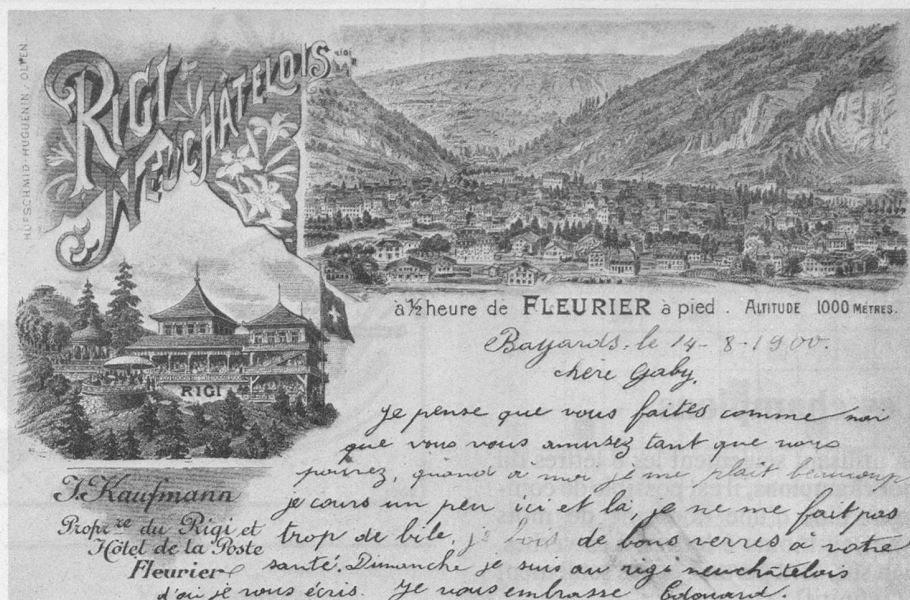 HUFSCHMID-HUGUENIN, OLTEN
RIGI
NEUCHÂTELOIS
à ½ heure de FLEURIER à pied. ALTITUDE 1000 MÈTRES.
RIGI
J. Kaufmann
Propre du Rigi et
Hôtel de la Poste
Fleurier
Bayards, le 14-8-1900.
chère Gaby,
je pense que vous faites comme moi
que vous vous amusez tant que vous
pouvez, quand à moi je me plait beaucoup
je cours un peu ici et là, je ne me fait pas
trop de bile, je bois de bons verres à votre
santé. Dimanche je suis au rigi neuchâtelois
d'où je vous écris. Je vous embrasse Edouard.